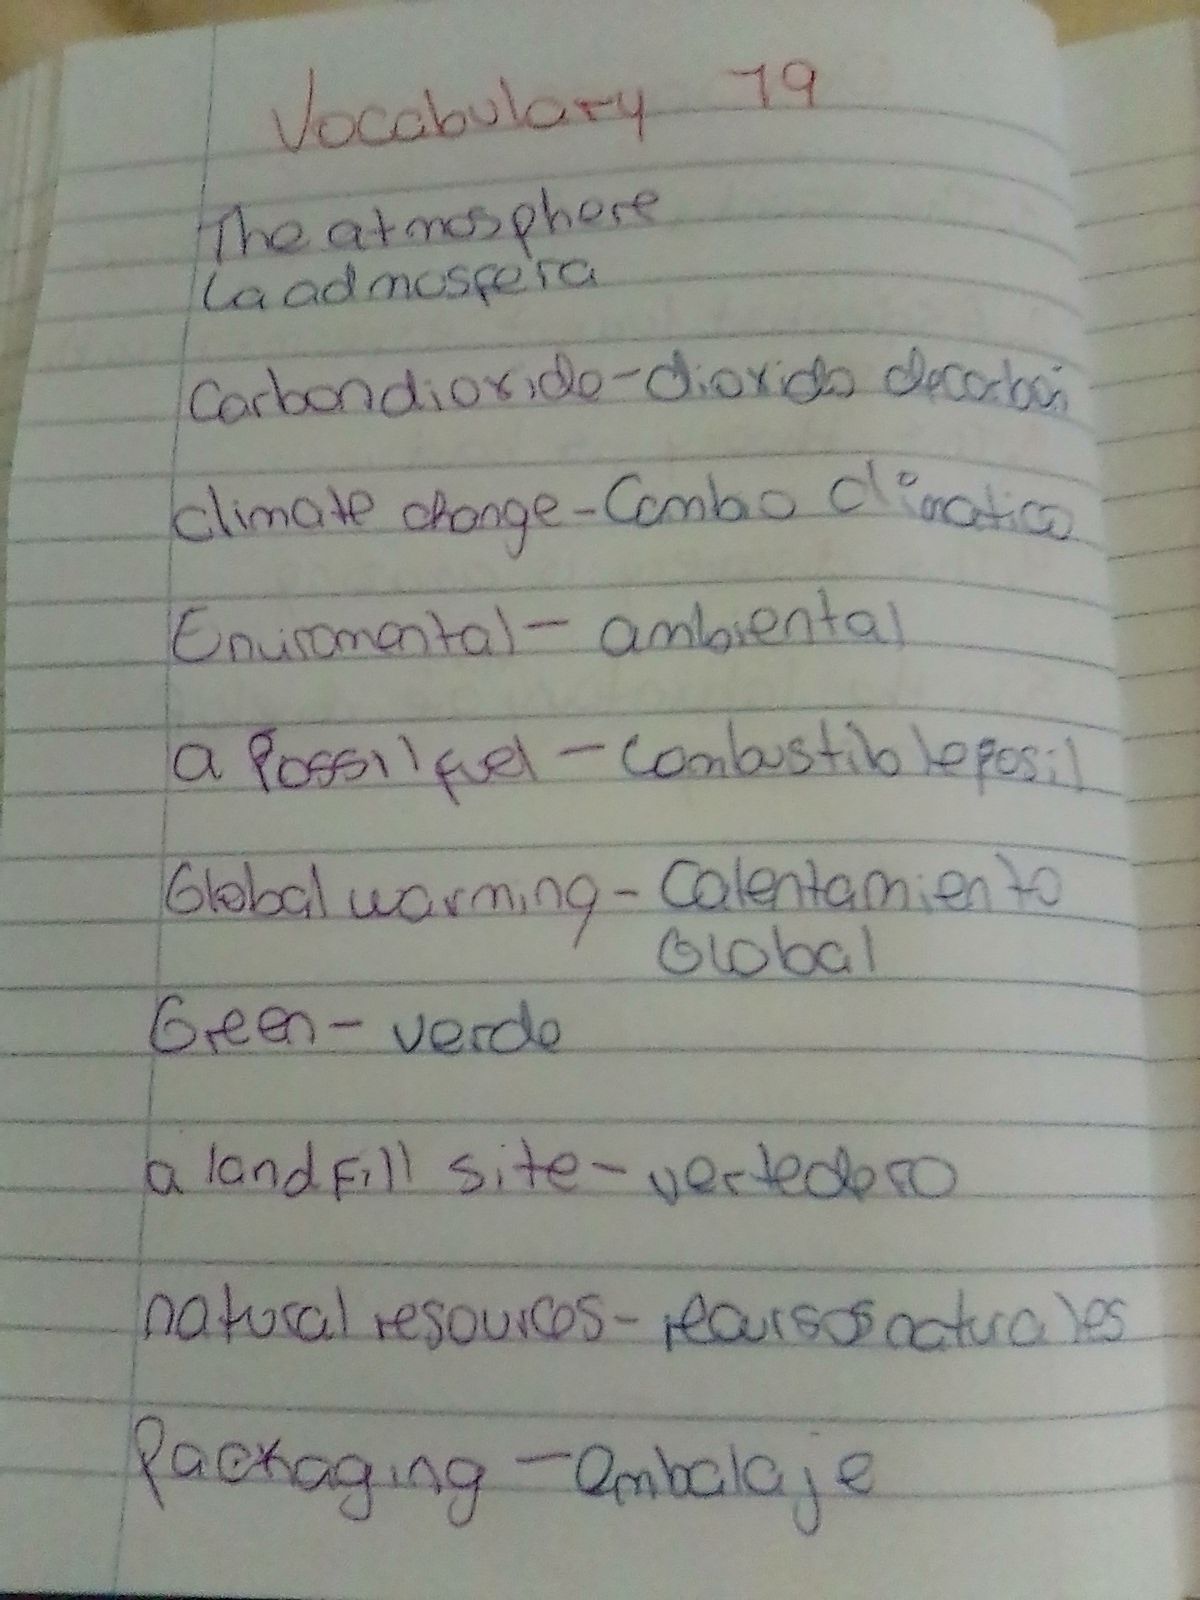 Vocabulary 19
The atmosphere
La admosfera
Carbon dioxide - dioxido de carbon
climate change - Cambio climatico
Enviromental - ambiental
a Fossil fuel - Combustible fosil
Global warming - Calentamiento
Global
Green - verde
a land Fill site - vertedero
natural resources - recursos naturales
Packaging - embalaje